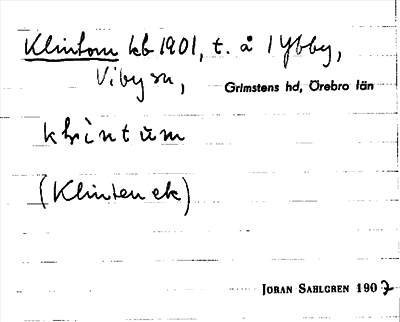 Klintom kb 1901, t. å Ybby,
Viby sn,
Grimstens hd, Örebro län
klìntum
(Klinten ek)
JÖRAN SAHLGREN 1907